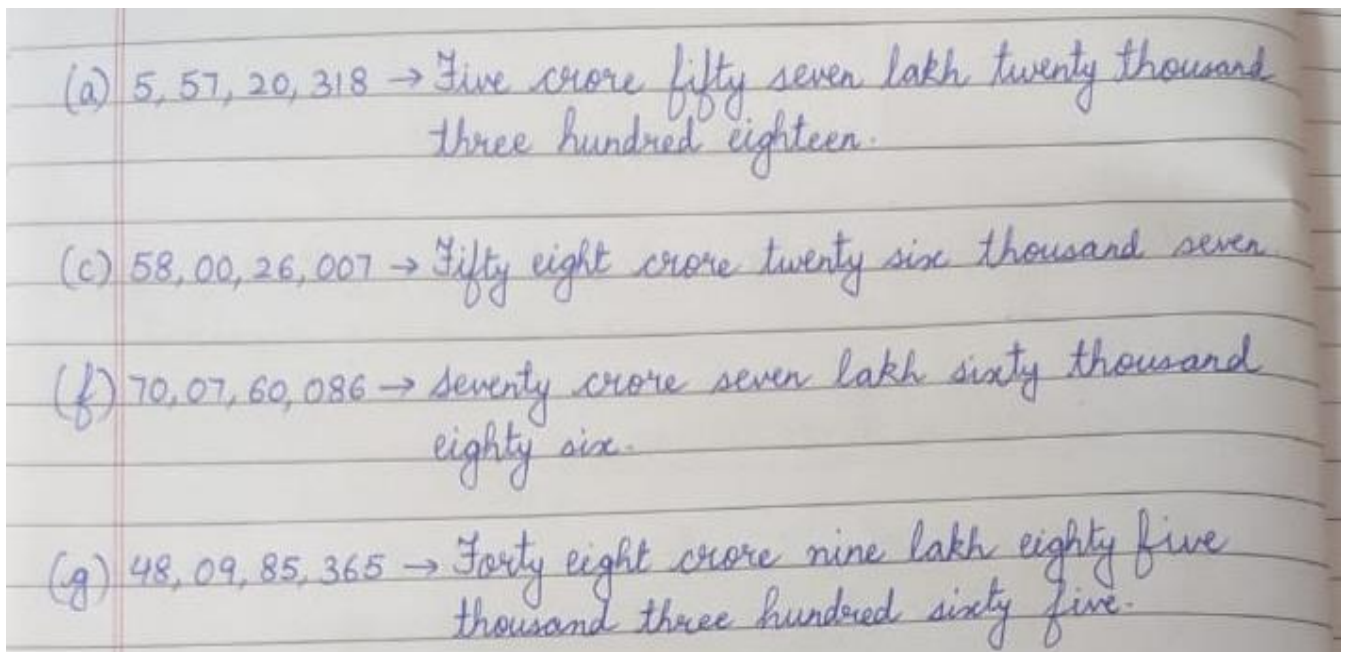 (a) 5, 57, 20, 318 → Five crore fifty seven lakh twenty thousand
three hundred eighteen.
(c) 58, 00, 26, 007 → Fifty eight crore twenty six thousand seven.
(f) 70, 07, 60, 086 → seventy crore seven lakh sixty thousand
eighty six.
(g) 48, 09, 85, 365 → Forty eight crore nine lakh eighty five
thousand three hundred sixty five.